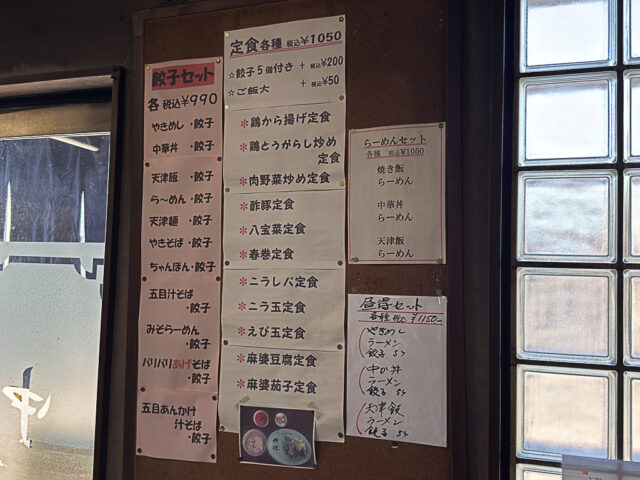 餃子セット
各 税込¥990
やきめし・餃子
中華丼・餃子
天津飯・餃子
ら〜めん・餃子
天津麺・餃子
やきそば・餃子
ちゃんぽん・餃子
五目汁そば
・餃子
みそらーめん
・餃子
パリパリあげそば
・餃子
五目あんかけ
汁そば
・餃子
定食各種 税込¥1050
☆餃子5個付き + ¥200
☆ご飯大 + ¥50
*鶏から揚げ定食
*鶏とうがらし炒め
定食
*肉野菜炒め定食
*酢豚定食
*八宝菜定食
*春巻定食
*ニラレバ定食
*ニラ玉定食
*えび玉定食
*麻婆豆腐定食
*麻婆茄子定食
らーめんセット
各種 税込¥1050
焼き飯
らーめん
中華丼
らーめん
天津飯
らーめん
昼得セット
各種 税込 ¥1150-
やきめし
ラーメン
餃子 5ケ
中か丼
ラーメン
餃子 5ケ
天津飯
ラーメン
餃子 5ケ